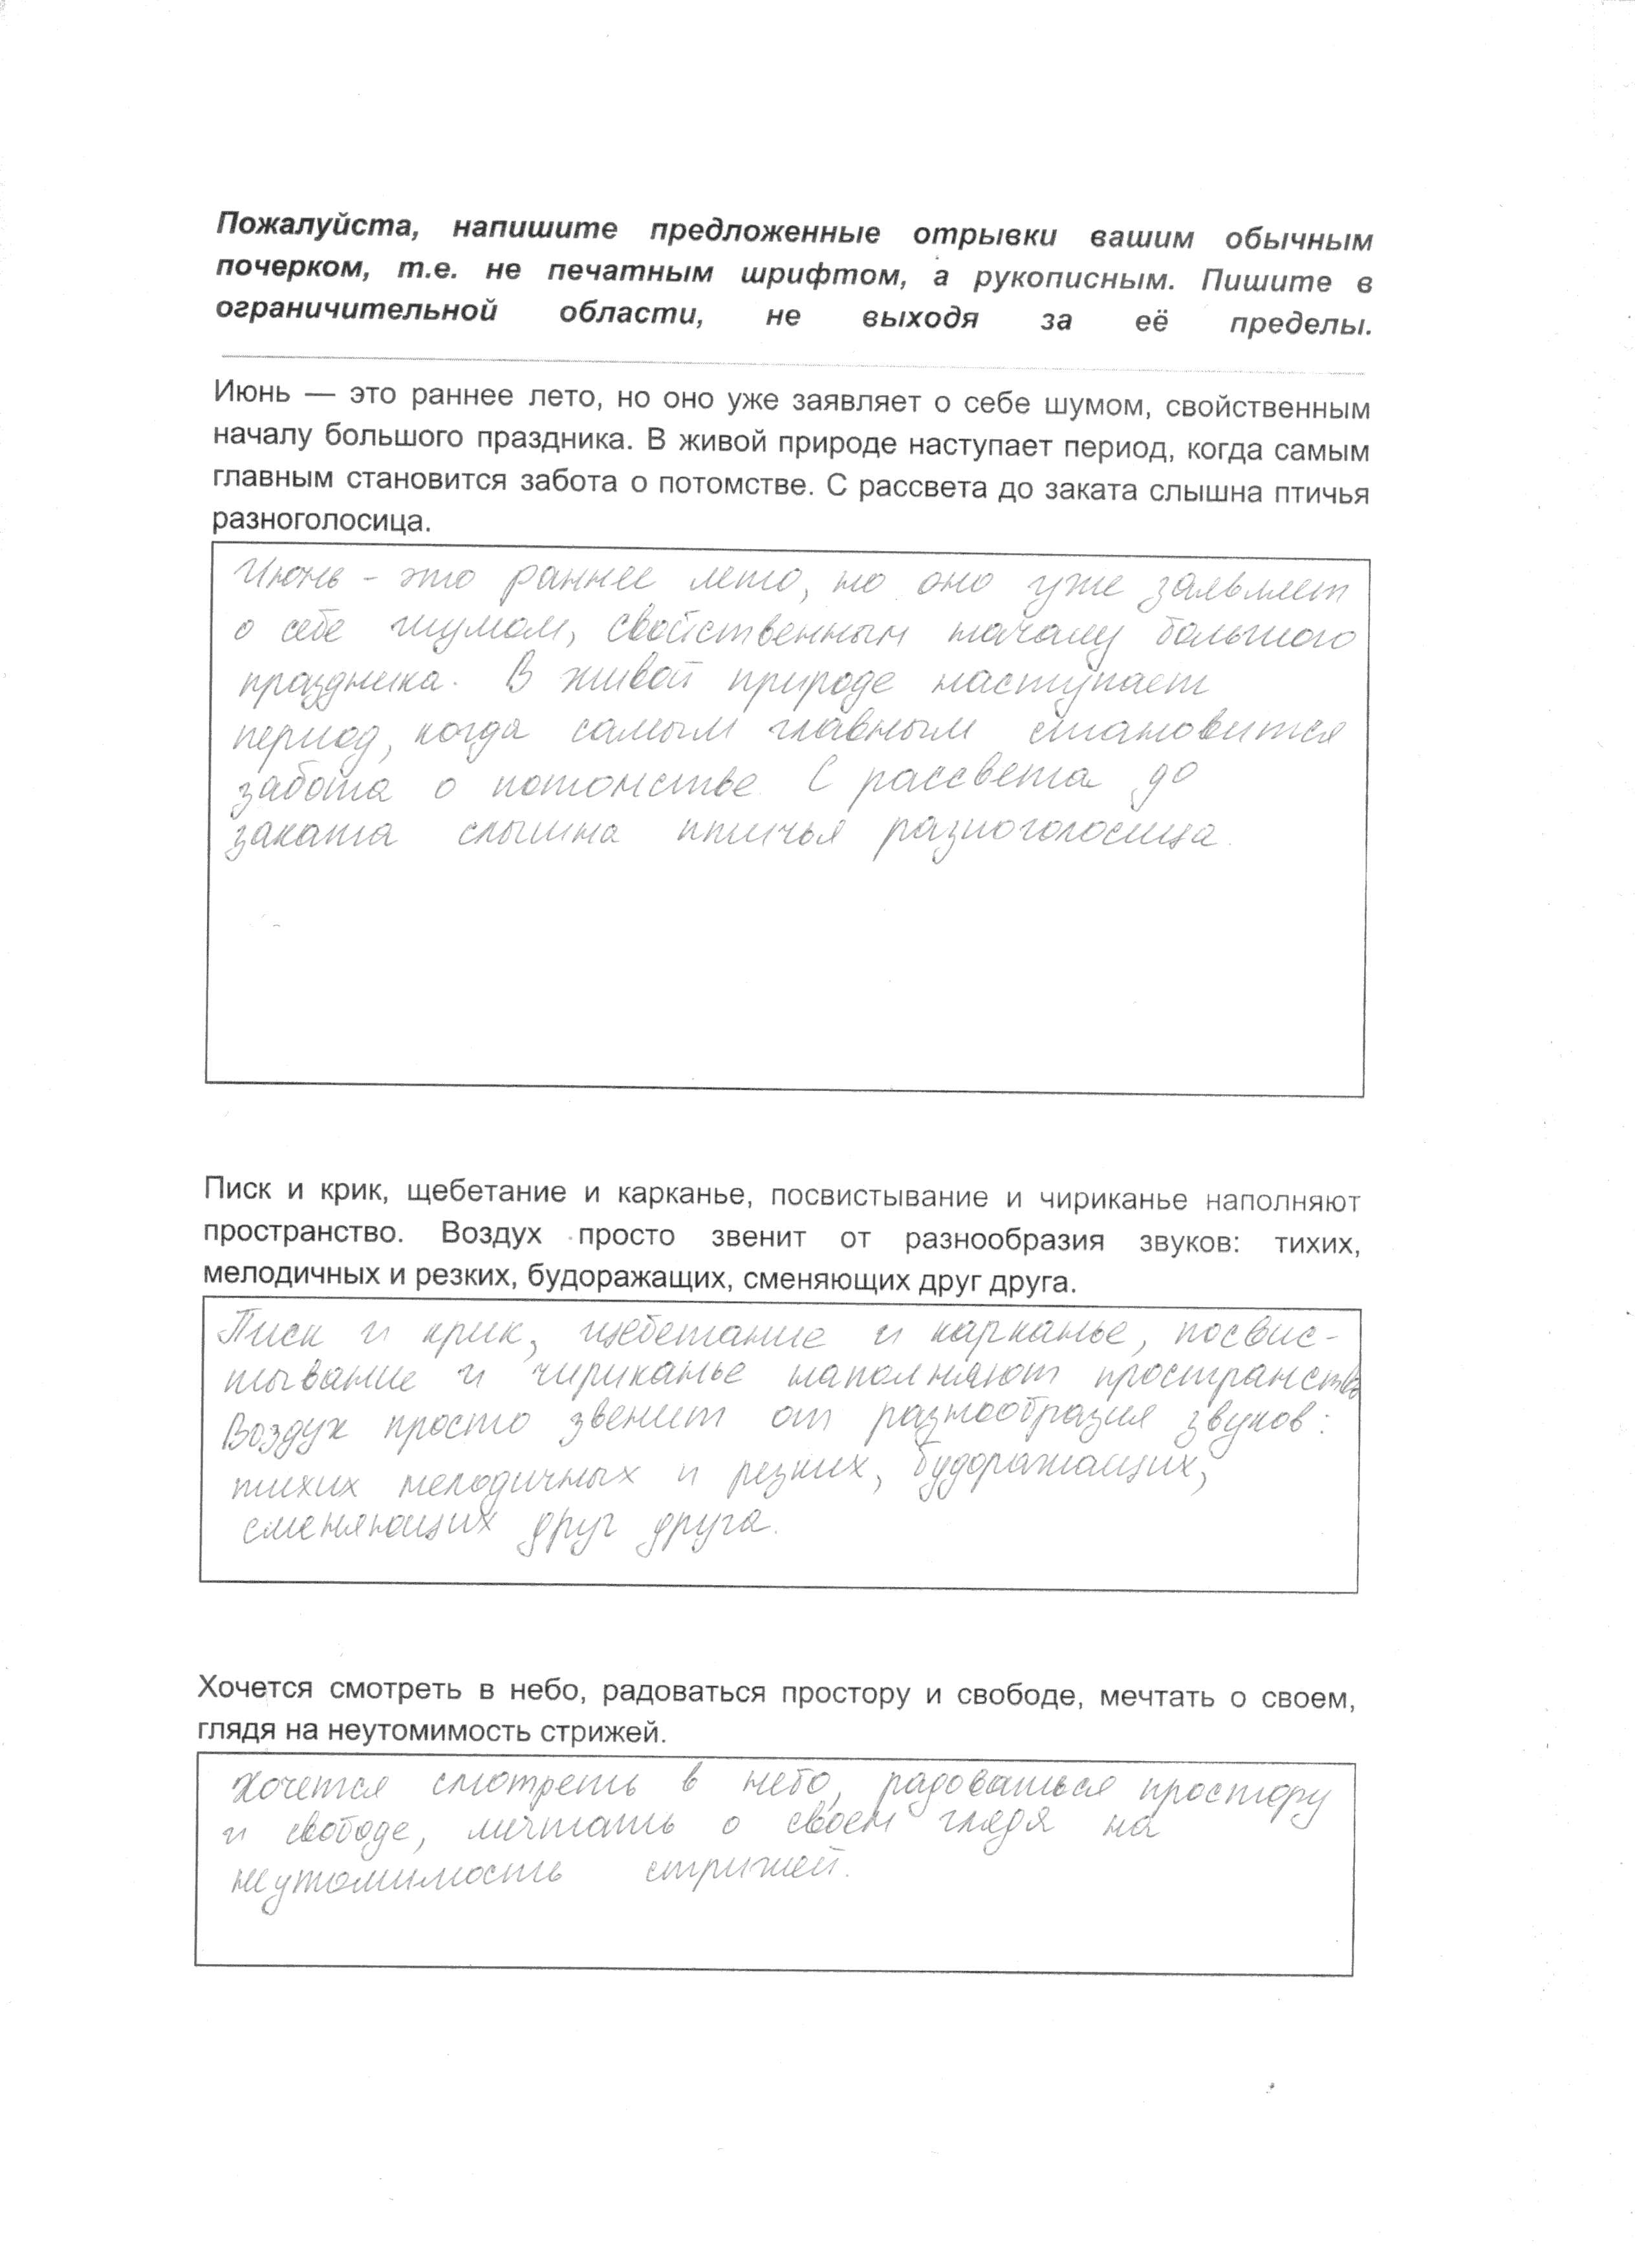 Пожалуйста, напишите предложенные отрывки вашим обычным
почерком, т.е. не печатным шрифтом, а рукописным. Пишите в
ограничительной области, не выходя за её пределы.
Июнь — это раннее лето, но оно уже заявляет о себе шумом, свойственным
началу большого праздника. В живой природе наступает период, когда самым
главным становится забота о потомстве. С рассвета до заката слышна птичья
разноголосица.
Июнь - это раннее лето, но оно уже заявляет
о себе шумом, свойственным началу большого
праздника. В живой природе наступает
период, когда самым главным становится
забота о потомстве. С рассвета до
заката слышна птичья разноголосица.
Писк и крик, щебетание и карканье, посвистывание и чириканье наполняют
пространство. Воздух просто звенит от разнообразия звуков: тихих,
мелодичных и резких, будоражащих, сменяющих друг друга.
Писк и крик, щебетание и карканье, посвис-
тывание и чириканье наполняют пространство
Воздух просто звенит от разнообразия звуков:
тихих мелодичных и резких, будоражащих,
сменяющих друг друга.
Хочется смотреть в небо, радоваться простору и свободе, мечтать о своем,
глядя на неутомимость стрижей.
Хочется смотреть в небо, радоваться простору
и свободе, мечтать о своем глядя на
неутомимость стрижей.